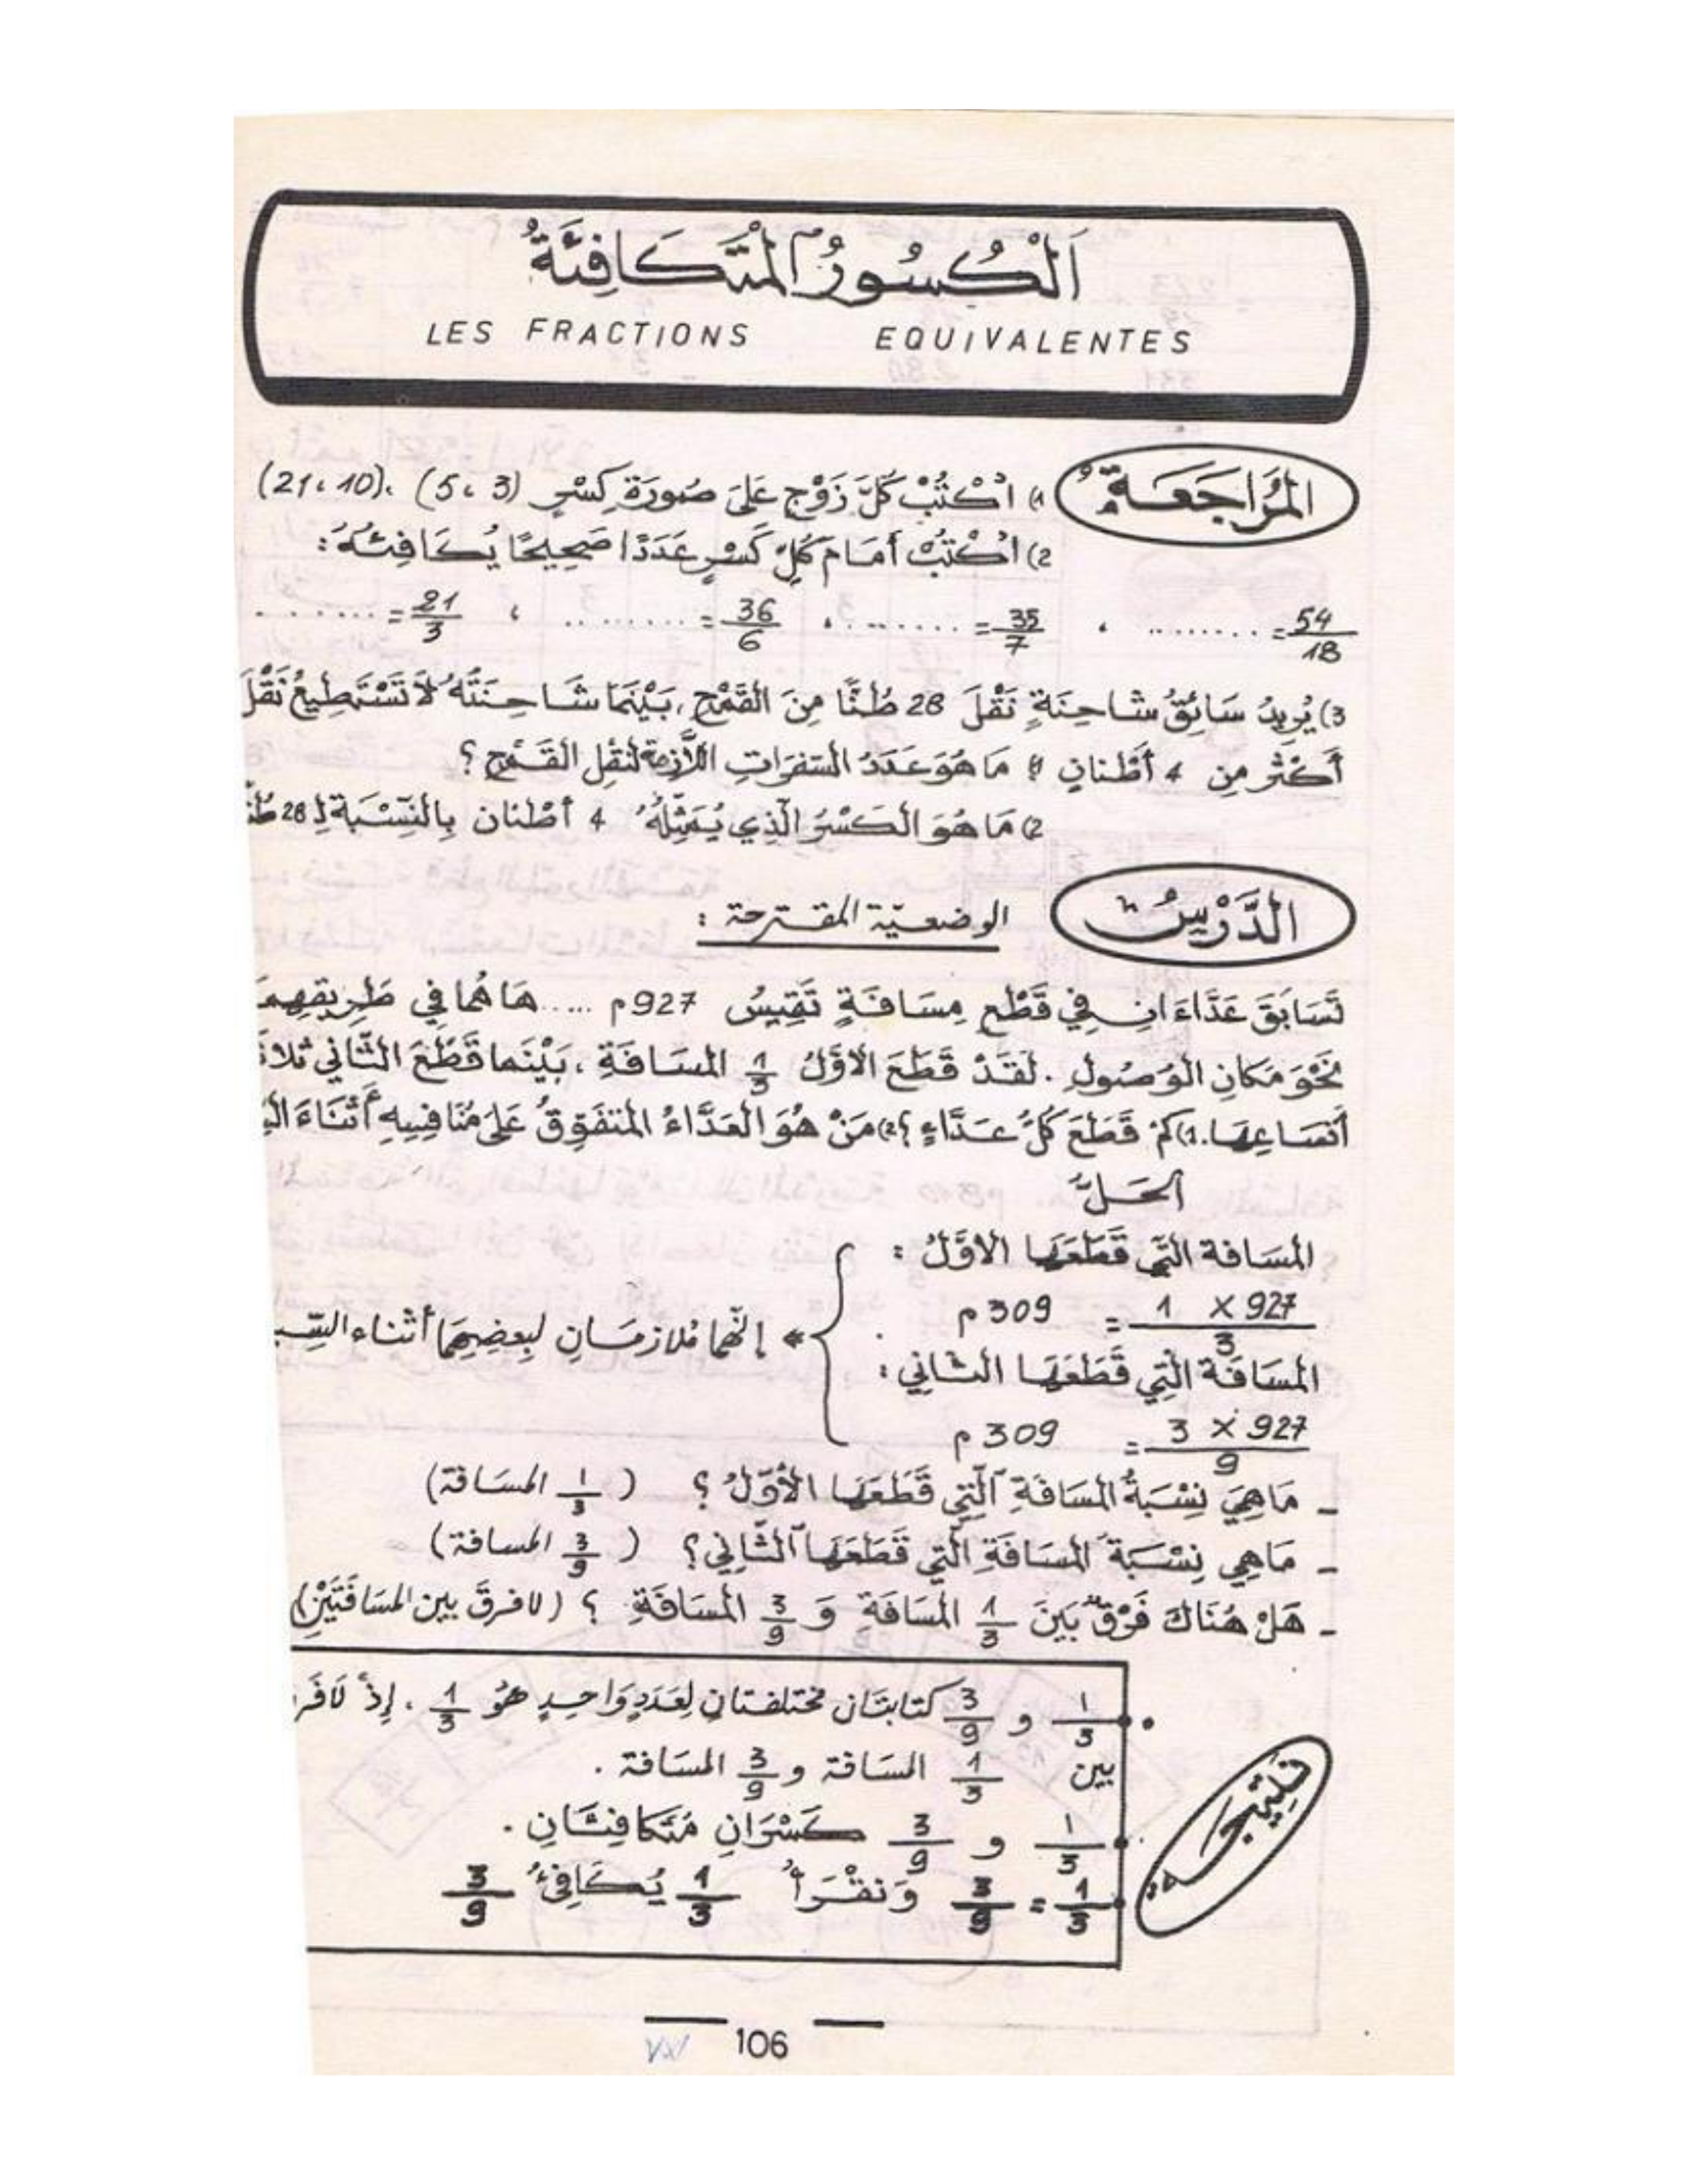 اَلْكُسُورُ الْمُتَكَافِئَةُ
LES FRACTIONS EQUIVALENTES
الْمُرَاجَعَةُ
1) اُكْتُبْ كُلَّ زَوْجٍ عَلَى صُورَةِ كَسْرٍ (3 ، 5) ، (10 ، 21)
2) اُكْتُبْ أَمَامَ كُلِّ كَسْرٍ عَدَدًا صَحِيحًا يُكَافِئُهُ :
54/18 = ......... ، 35/7 = ......... ، 36/6 = ......... ، 21/3 = .........
3) يُرِيدُ سَائِقُ شَاحِنَةٍ نَقْلَ 28 طُنًّا مِنَ الْقَمْحِ ، بَيْنَمَا شَاحِنَتُهُ لَا تَسْتَطِيعُ نَقْلَ
أَكْثَرَ مِنْ 4 أَطْنَانٍ 1) مَا هُوَ عَدَدُ السَّفَرَاتِ اللَّازِمَةِ لِنَقْلِ الْقَمْحِ ؟
2) مَا هُوَ الْكَسْرُ الَّذِي يُمَثِّلُهُ 4 أَطْنَان بِالنِّسْبَةِ لِـ 28 طُنّ
الدَّرْسُ
الوضعيّة المقترحة :
تَسَابَقَ عَدَّاءَانِ فِي قَطْعِ مِسَافَةٍ تَقِيسُ 927 م ..... هَا هُمَا فِي طَرِيقِهِمَ
نَحْوَ مَكَانِ الْوُصُولِ . لَقَدْ قَطَعَ الْأَوَّلُ 1/3 الْمَسَافَةِ ، بَيْنَمَا قَطَعَ الثَّانِي ثَلَاثَ
أَتْسَاعِهَا. 1) كَمْ قَطَعَ كُلُّ عَدَّاءٍ ؟ 2) مَنْ هُوَ الْعَدَّاءُ الْمُتَفَوِّقُ عَلَى مُنَافِسِهِ أَثْنَاءَ
الحَلُّ
الْمَسَافَة الَّتِي قَطَعَهَا الْأَوَّلُ :
1 × 927 / 3 = 309 م
الْمَسَافَة الَّتِي قَطَعَهَا الثَّانِي :
3 × 927 / 9 = 309 م
إِنَّهُمَا مُلَازِمَانِ لِبَعْضِهِمَا أَثْنَاء
- مَا هِيَ نِسْبَةُ الْمَسَافَةِ الَّتِي قَطَعَهَا الْأَوَّلُ ؟ ( 1/3 الْمَسَافَة)
- مَا هِي نِسْبَةُ الْمَسَافَةِ الَّتِي قَطَعَهَا الثَّانِي ؟ ( 3/9 الْمَسَافَة)
- هَلْ هُنَاكَ فَرْقٌ بَيْنَ 1/3 الْمَسَافَةِ وَ 3/9 الْمَسَافَةِ ؟ (لَا فَرْقَ بين الْمَسَافَتَيْنِ)
نَتِيجَة
• 1/3 و 3/9 كتابتَان مختلفتانِ لِعَدَدٍ وَاحِدٍ هُوَ 1/3 ، إِذْ لَا
بين 1/3 الْمَسَافَة و 3/9 الْمَسَافَة .
1/3 و 3/9 كَسْرَانِ مُتَكَافِئَانِ .
1/3 = 3/9 وَنَقْرَأُ 1/3 يُكَافِئُ 3/9
106